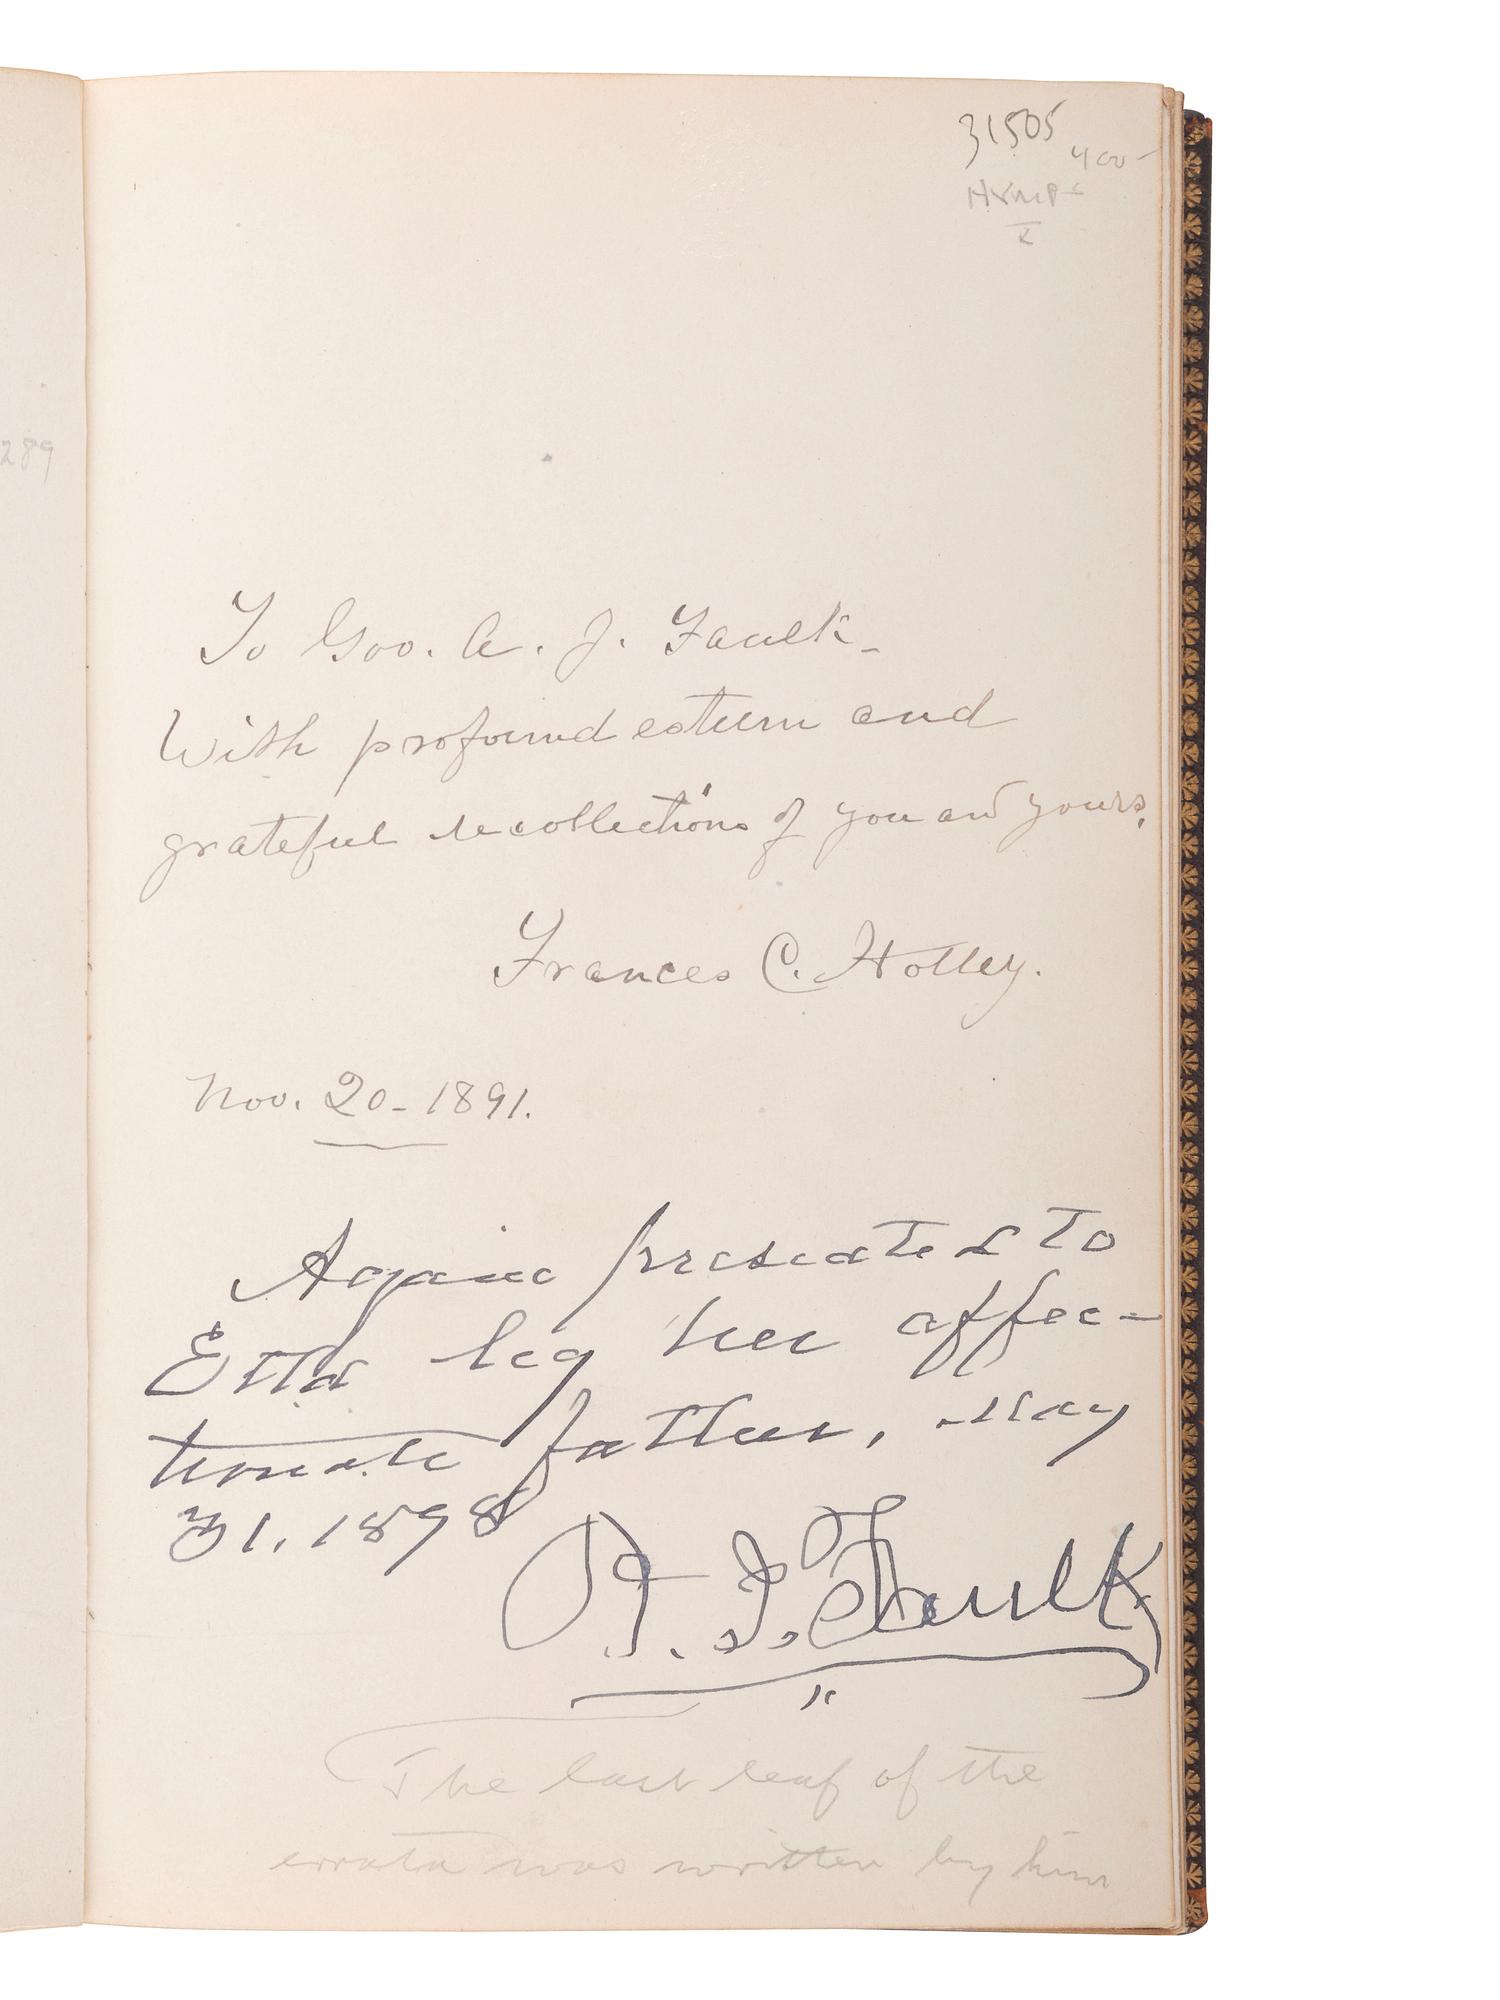 31505
400-
289
To Gov. A. J. Faulk-
With profound esteem and
grateful recollections of you and yours,
Frances C. Holley.
Nov. 20-1891.
Again presented to
Etta by her affec-
tionate father, May
31, 1898
A. J. Faulk
The last leaf of the
errata was written by him